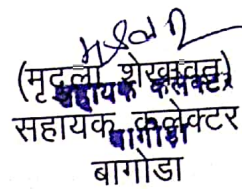 (मृदुला शेखावत)
सहायक कलेक्टर
सहायक कलेक्टर
बागोडा